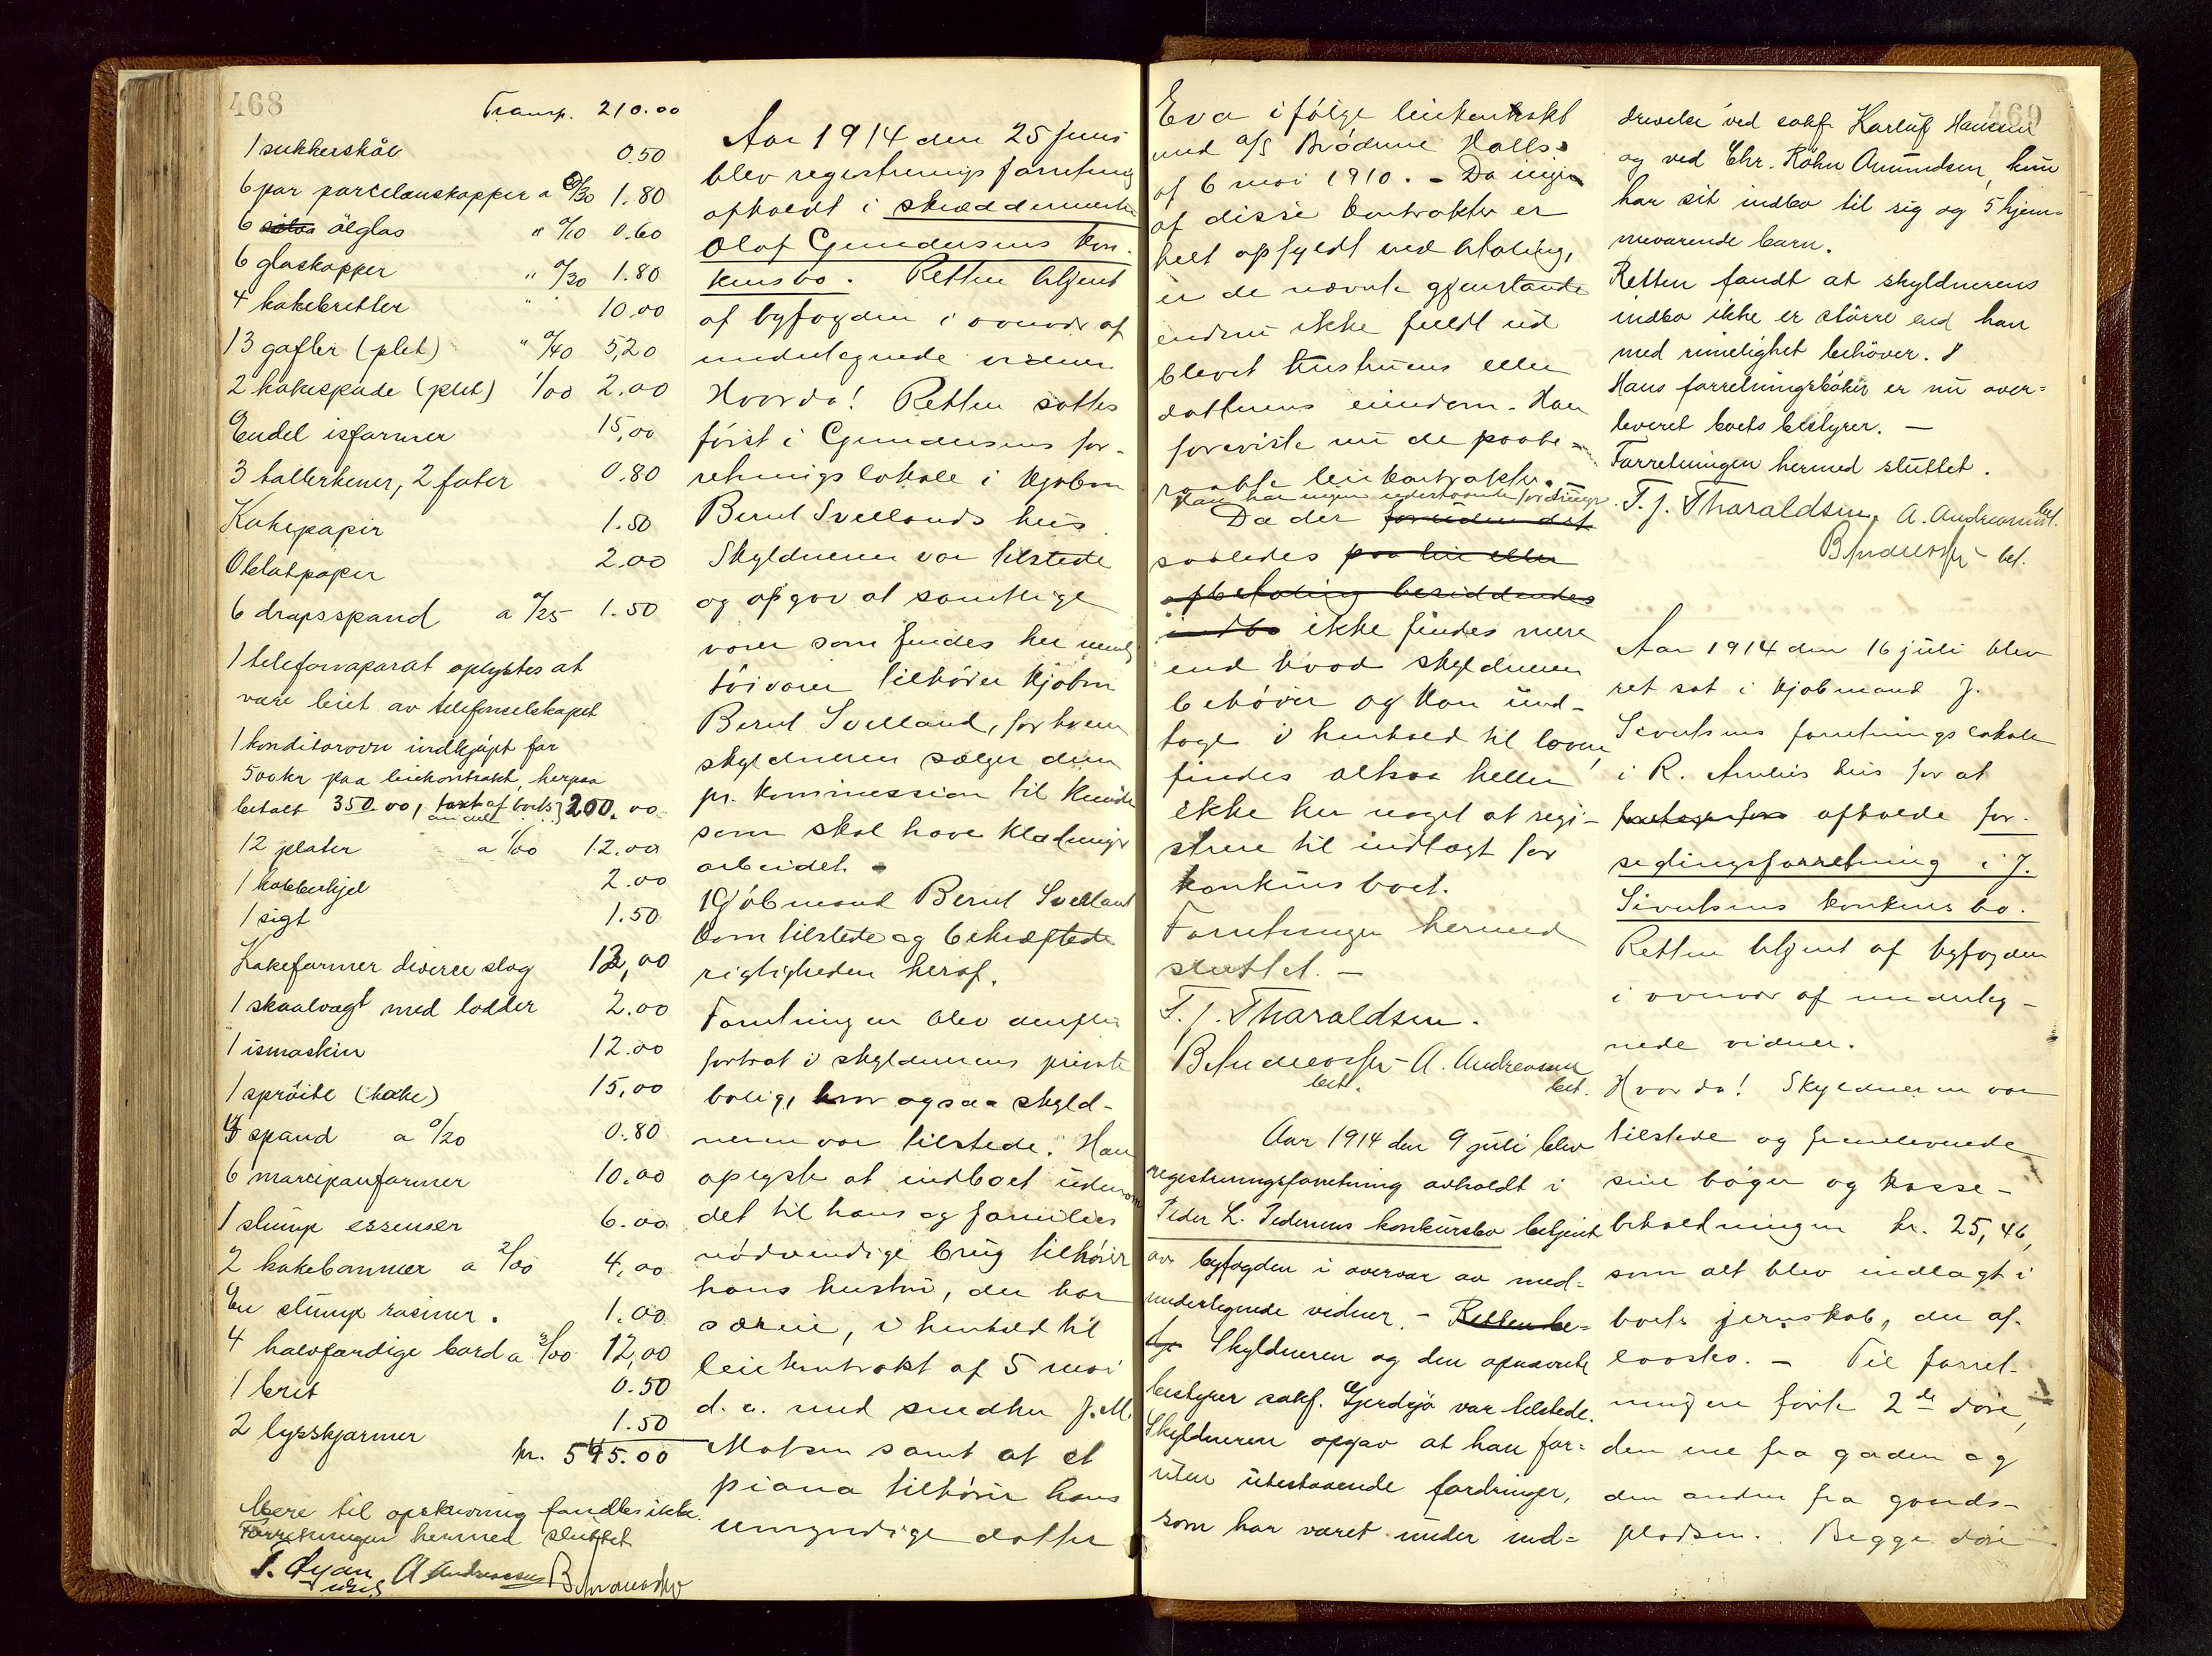 468
Transp. 210.00
1 sukkerskål 0.50
6 par porcelanskopper a 0/30 1.80
6 ölglas " 0/10 0.60
6 glaskopper " 0/30 1.80
4 kakebretter " 10.00
13 gafler (plet) " 0/40 5,20
2 kakespade (plet) 1/00 2.00
Endel isformer 15,00
3 tallerkener, 2 fater 0.80
Kakepapir 1.50
Oblatpapir 2.00
6 dropsspand a 0/25 1.50
1 telefonaparat oplystes at
være leiet av telefonselskapet
1 konditorovn indkjøpt for
500 kr paa leiekontrakt, herpaa
betalt 350.00, takst af boets andel 200.00
12 plater a 1/00 12.00
1 kobberkjel 2.00
1 sigt 1.50
Kakeformer diverse slag 12,00
1 skaalvegt med lodder 2.00
1 ismaskin 12.00
1 spröite (kake) 15,00
4 spand a 0/20 0.80
6 marcipanformer 10.00
1 slump essenser 6.00
2 kakebommer a 2/00 4,00
En slump rosiner. 1.00
4 halvfærdige bord a 3/00 12,00
1 brit 0.50
2 lysskjærmer 1.50
kr. 545.00
Mere til opskrivning fandtes ikke.
Forretningen hermed sluttet
A Andreassen
Aar 1914 den 25 juni
blev registrerings forretning
afholdt i skræddermester
Olaf Gundersens kon-
kursbo. Retten betjent
af byfogden i overvær af
undertegnede vidner
Hvorda! Retten sattes
først i Gundersens for-
retningslokale i kjøbm
Bernt Svellands hus
Skyldneren var tilstede
og opgav at samtlige
varer som findes her nemlig
tøivarer tilhører kjøbm
Bernt Svelland, for hvem
skyldneren sælger dem
pr. kommission til kunder
som skal have klædninger
arbeidet.
Kjøbmand Bernt Svelland
kom tilstede og bekræftede
rigtigheden heraf.
Forretningen blev derefter
fortsat i skyldnerens private
bolig, hvor ogsaa skyld-
neren var tilstede. Han
oplyste at indboet udenom
det til hans og families
nødvendige brug tilhører
hans hustru, der har
særeie, i henhold til
leiekontrakt af 5 mai
d. a. med snedker J. M.
Matsen samt at et
piano tilhører hans
umyndige datter
469
Eva ifølge leiekontrakt
med a/s Brødrene Halls
af 6 mai 1910. - Da ingen
af disse kontrakter er
helt opfyldt ved betaling,
er de nævnte gjenstande
endnu ikke fuldt ud
blevet hustruens eller
datterens eiendom. Han
foreviste nu de paabe-
raabte leiekontrakter.
Han har ingen udestaaende fordringer.
Da der foruden det
saaledes paa leie eller
afbetaling besiddende
indbo ikke findes mere
end hvad skyldneren
behøver og kan und-
tage i henhold til loven,
findes altsaa heller
ikke her noget at regi-
strere til indtægt for
konkursboet.
Forretningen hermed
sluttet. -
T. J. Tharaldsen.
A. Andreassen
bet. bet.
Aar 1914 den 9 juli blev
registreringsforretning avholdt i
Peder L. Pedersens konkursbo betjent
av byfogden i overvær av med-
undertegnede vidner. - Retten be-
tje Skyldneren og den opnævnte
bestyrer sakf. Gjerdsjø var tilstede.
Skyldneren opgav at han for-
uten utestaaende fordringer,
som har været under ind-
drivelse ved sakf. Karluf Hansen
og ved Chr. Röhn Amundsen, kun
har sit indbo til sig og 5 hjem-
meværende barn.
Retten fandt at skyldnerens
indbo ikke er större end han
med rimelighet behöver.
Hans forretningsböker er nu over-
leveret boets bestyrer. -
Forretningen hermed sluttet.
T. J. Tharaldsen. A. Andreassen
bet.
bet.
Aar 1914 den 16 juli blev
ret sat i kjøbmand J.
Sivertsens forretningslokale
i R. hus for at
foretage for afholde for-
seglingsforretning i J.
Sivertsens konkursbo.
Retten betjent af byfogden
i overvær af underteg-
nede vidner.
Hvorda! Skyldneren var
tilstede og fremleverede
sine bøger og kasse-
beholdningen kr. 25,46,
som alt blev indlagt i
boets jernskab, der af-
laastes. - Til forret-
ningen førte 2de døre,
den ene fra gaden og
den anden fra gaards-
pladsen. Begge døre